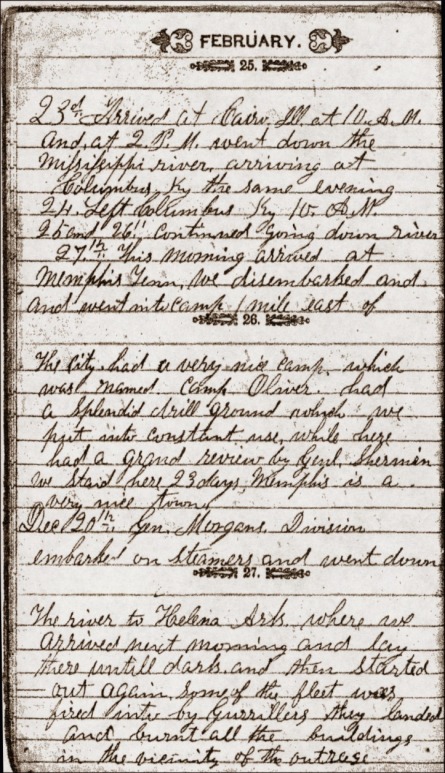 FEBRUARY.
25.
23d. Arrived at Cairo, Ill at 10. A.M.
And, at 2 P.M. went down the
Missisippi river, arriving at
Columbus, Ky the same evening
24. Left Columbus Ky 10. A.M.
25 and 26", continued going down river
27.th This morning arrived at
Memphis Tenn, we disembarked and
and went into camp 1 mile east of
26.
The City, had a very nice camp, which
was named Camp Oliver, had
a splendid drill ground which we
put into constant use, while here
had a grand review by Genl. Shermen
we staid here 23 days, Memphis is a
very nice town,
Dec 20th Gen. Morgans, Division
embarked on steamers and went down
27.
The river to Helena Ark. where we
arrived next morning and lay
there untill dark and then started
out again. Some of the fleet was
fired into by Gurrillers they landed
and burnt all the buildings
in the vicinity of the outrage